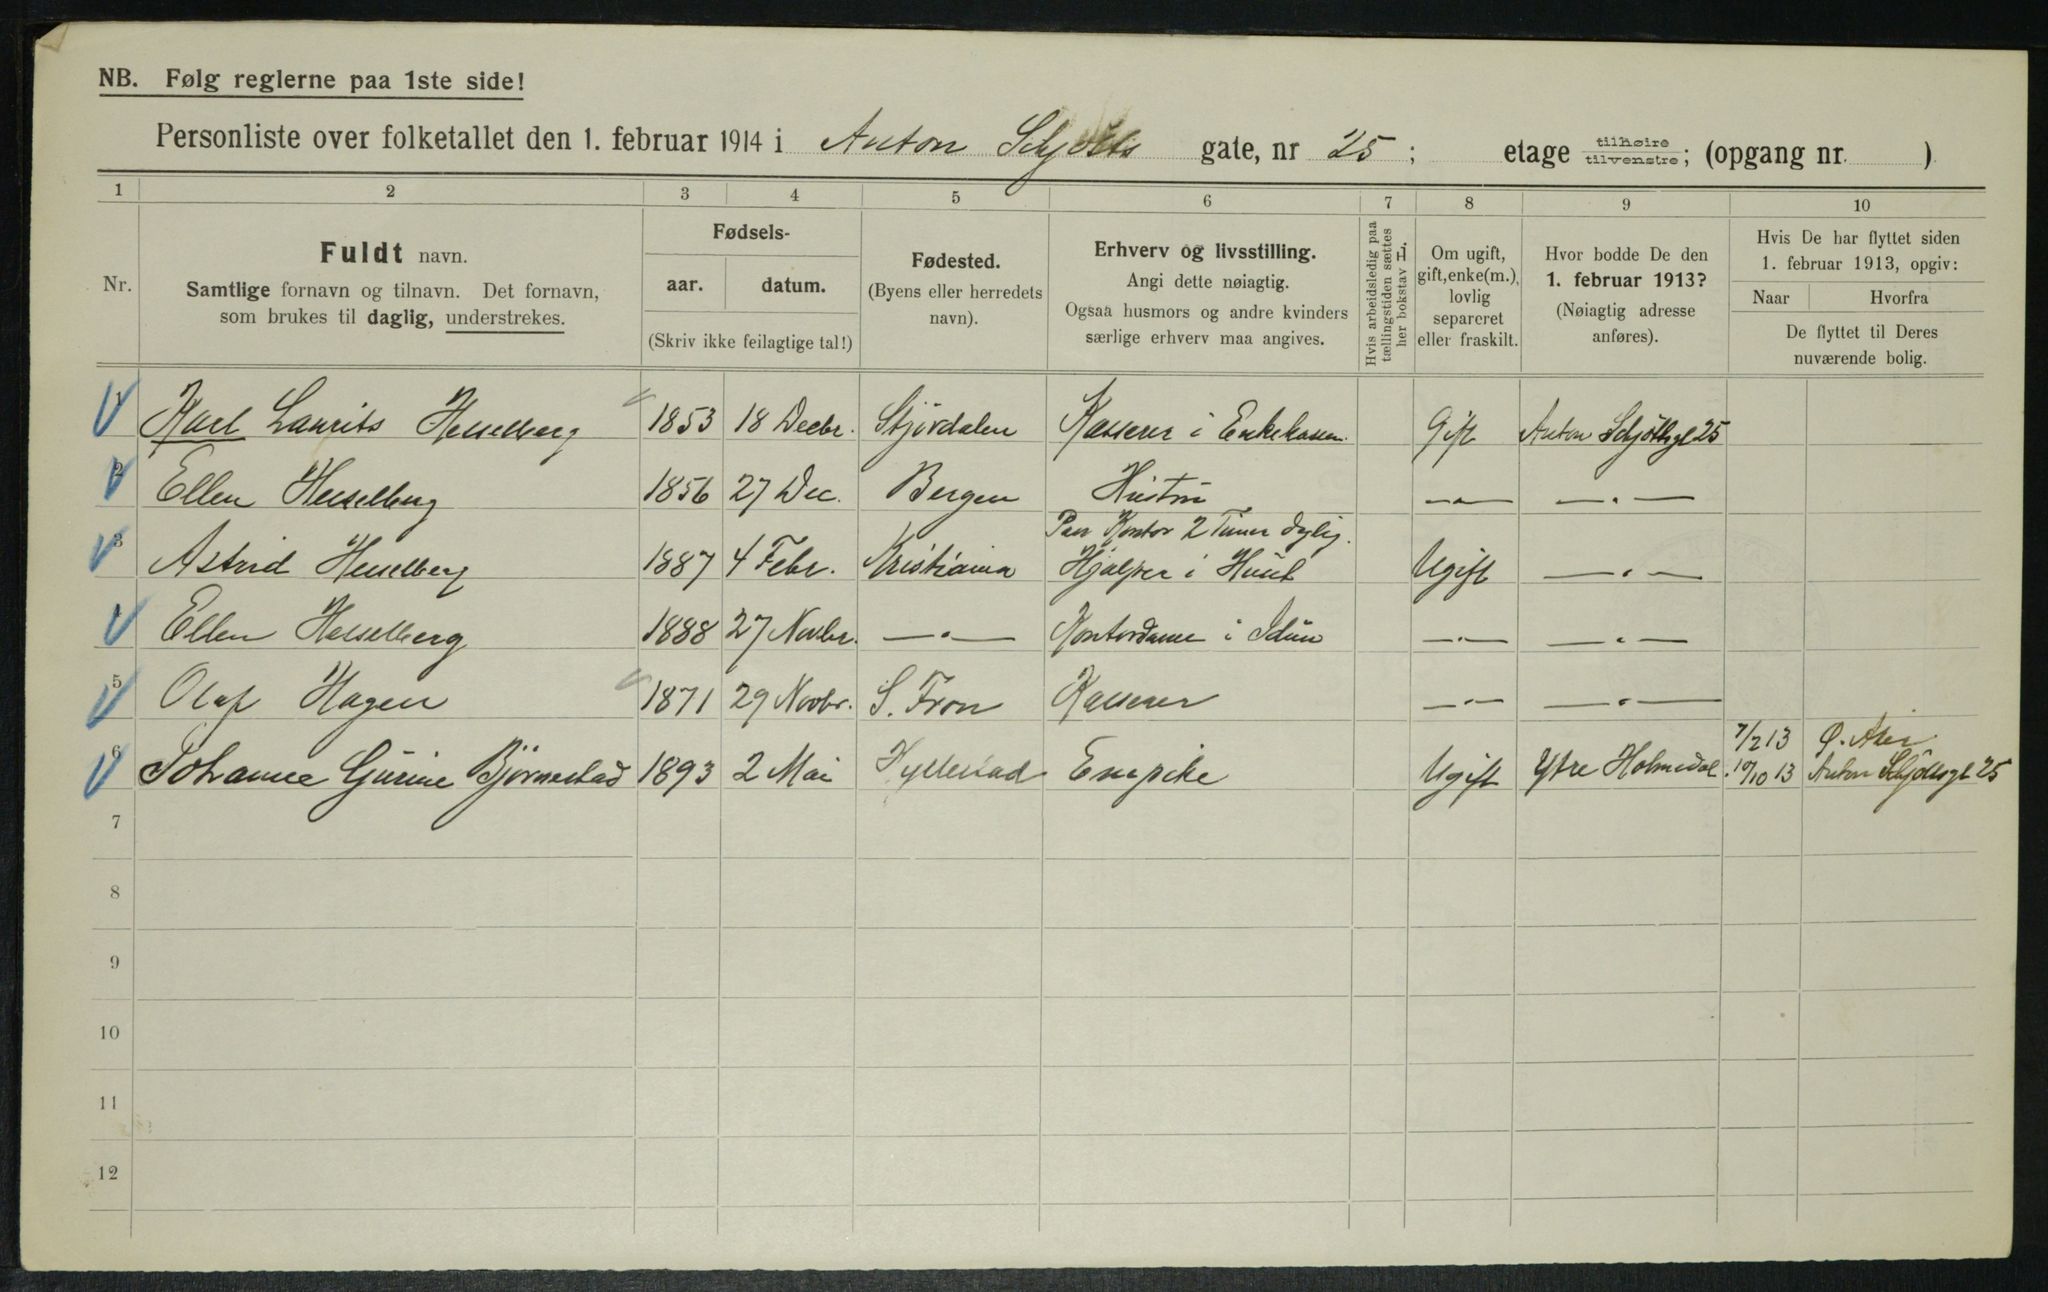 NB. Følg reglerne paa 1ste side!
Personliste over folketallet den 1. februar 1914 i Anton Schjøtts gate, nr 25; etage tilhøire tilvenstre; (opgang nr. )
1 2 3 4 5 6 7 8 9 10
Nr.
Fuldt navn.
Samtlige fornavn og tilnavn. Det fornavn,
som brukes til daglig, understrekes.
Fødsels-
aar. datum.
(Skriv ikke feilagtige tal!)
Fødested.
(Byens eller herredets
navn).
Erhverv og livsstilling.
Angi dette nøiagtig.
Ogsaa husmors og andre kvinders
særlige erhverv maa angives.
Hvis arbeidsledig paa
tællingstiden sættes
her bokstav L.
Om ugift,
gift, enke(m.),
lovlig
separeret
eller fraskilt.
Hvor bodde De den
1. februar 1913?
(Nøiagtig adresse
anføres).
Hvis De har flyttet siden
1. februar 1913, opgiv:
Naar Hvorfra
De flyttet til Deres
nuværende bolig.
1 Karl Laurits Hesselberg 1853 18 Decbr. Stjørdalen Kasserer i Enkekassen. Gift Anton Schjöttsgt 25
2 Ellen Hesselberg 1856 27 Dec. Bergen Hustru —„— —„—
Paa Kontor 2 Timer daglig.
3 Astrid Hesselberg 1887 4 Febr. Kristiania Hjælper i Huset Ugift —„—
4 Ellen Hesselberg 1888 27 Novbr. —„— Kontordame i Idun —„— —„—
5 Olaf Hagen 1871 29 Novbr. S. Fron Kasserer —„— —„—
7/2 13 Ø. Aker
6 Johanne Gurine Bjørnestad 1893 2 Mai Hyllestad Enepike Ugift Ytre Holmedal. 10/10 13 Anton Schjöttsgt 25
7
8
9
10
11
12